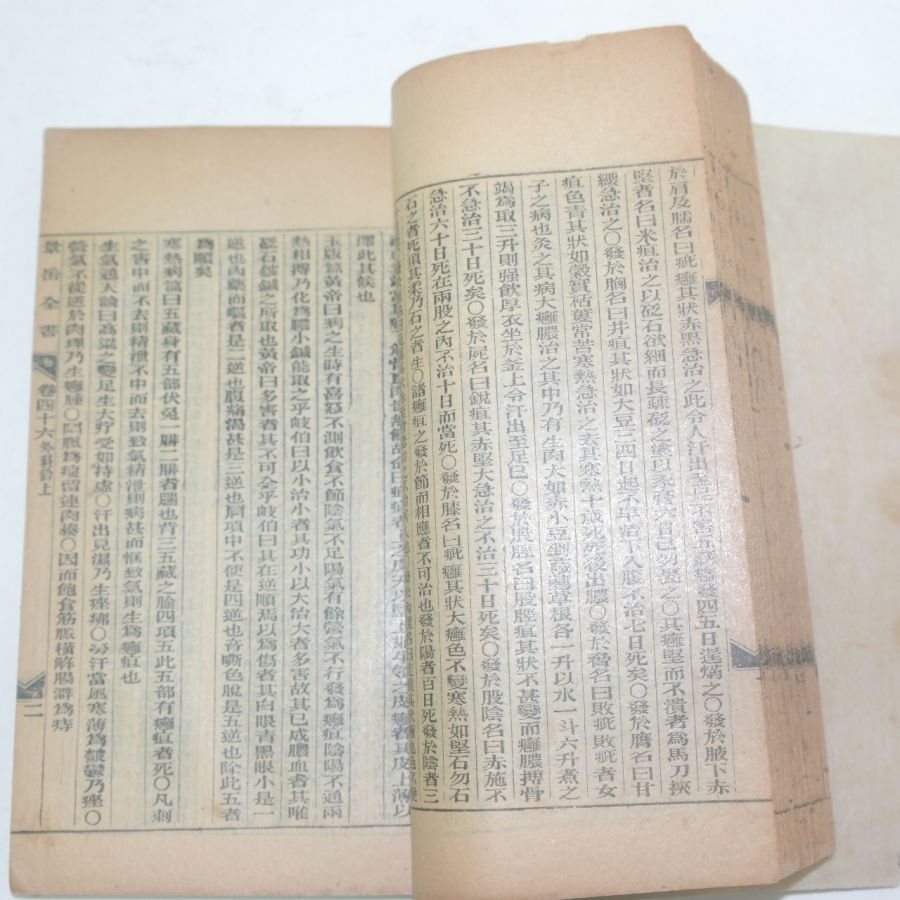 於肩及臑名曰疵癰其狀赤黑急治之此令人汗出至足不害五藏癰發四五日逞焫之○發於腋下赤
堅者名曰米疽治之以砭石欲細而長疎砭之塗以豕膏六日已勿裹之○其癰堅而不潰者爲馬刀挾
纓急治之○發於胸名曰井疽其狀如大豆三四日起不早治下入腹不治七日死矣○發於膺名曰甘
疽色青其狀如榖實栝蔞常苦寒熱急治之去其寒熱十歲死死後出膿○發於脅名曰敗疵敗疵者女
子之病也灸之其病大癰膿治之其中乃有生肉大如赤小豆剉䔖翹草根各一升以水一斗六升煮之
竭爲取三升則强飲厚衣坐於釜上令汗出至足已○發於股脛名曰股脛疽其狀不甚變而癰膿搏骨
不急治三十日死矣○發於尻名曰銳疽其赤堅大急治之不治三十日死矣○發於股陰名曰赤施不
急治六十日死在兩股之內不治十日而當死○發於膝名曰疵癰其狀大癰色不變寒熱如堅石勿石
石之者死須其柔乃石之者生○諸癰疽之發於節而相應者不可治也發於陽者百日死發於陰者三
澤此其候也
玉版篇黃帝曰病之生時有喜怒不測飲食不節陰氣不足陽氣有餘營氣不行發爲癰疽陰陽不通兩
熱相搏乃化爲膿小鍼能取之乎岐伯曰以小治小者其功小以大治大者多害故其已成膿血者其唯
砭石鈹鍼之所取也黃帝曰多害者其不可全乎岐伯曰其在逆順焉以爲傷者其白眼青黑眼小是一
逆也內藥而嘔者是二逆也腹痛渴甚是三逆也肩項中不便是四逆也音嘶色脫是五逆也除此五者
爲順矣
寒熱病篇曰五藏身有五部伏兔一腓二腓者腨也背三五藏之腧四項五此五部有癰疽者死○凡刺
之害中而不去則精泄不中而去則致氣精泄則病甚而恇致氣則生爲癰疽也
生氣通天論曰高粱之變足生大疔受如持虛○汗出見濕乃生痤疿○勞汗當風寒薄爲皶鬱乃痤○
營氣不從逆於肉理乃生癰腫○陷脈爲瘻留連肉腠○因而飽食筋脈橫解腸澼爲痔
景岳全書 卷四十六 外科鈐上 二